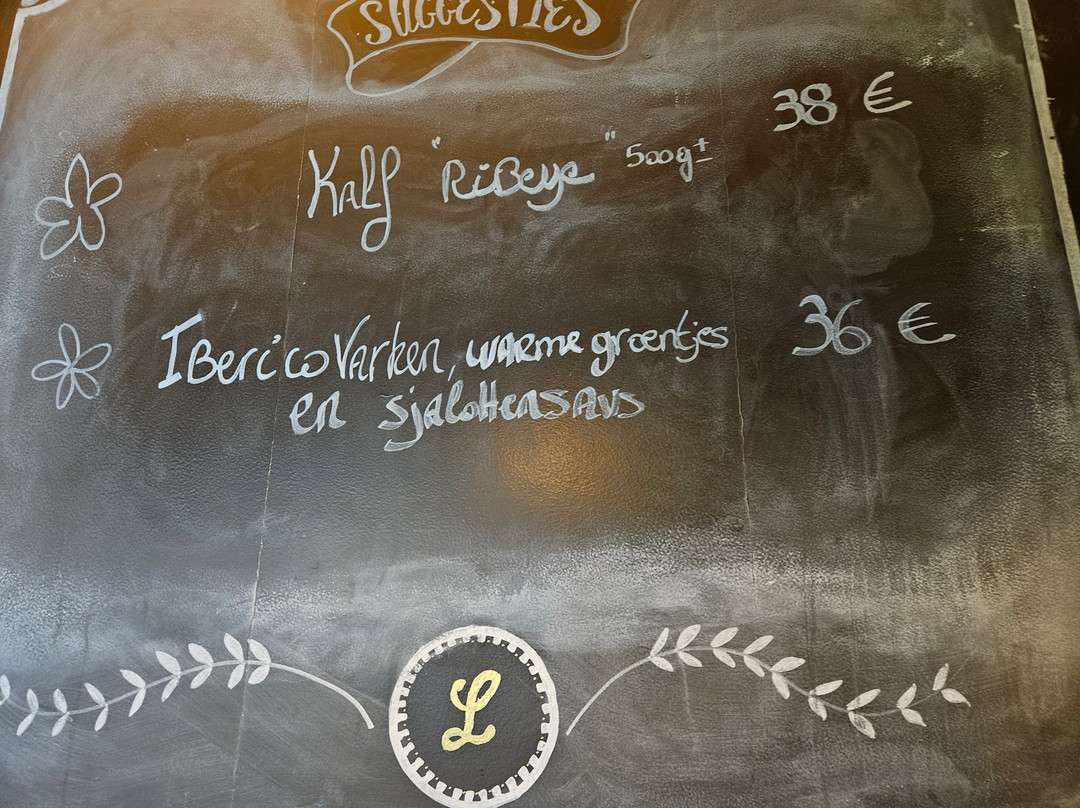 SUGGESTIES
38 €
Kalf "RiBeye" 500g±
IBerico Varken, warme groentjes 36 €
en sjalottensaus
L